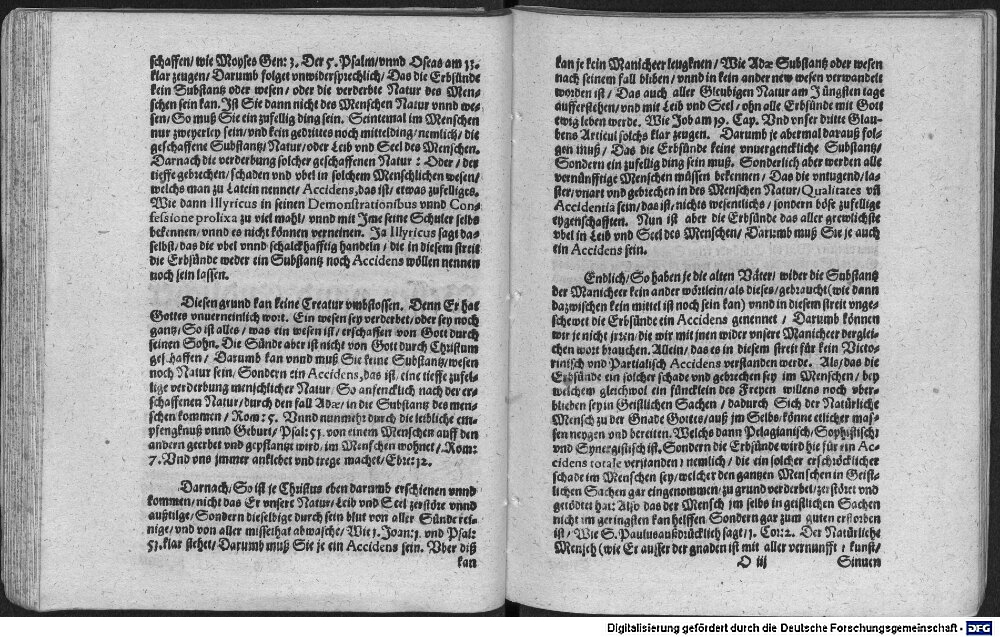 schaffen/ wie Moyses Gen: 3. Der 5. Psalm/ vnnd Oseas am 13.
klar zeugen/ Darumb folget vnwidersprechlich/ Das die Erbsünde
kein Substantz oder wesen/ oder die verderbte Natur des Men-
schen sein kan. Ist Sie dann nicht des Menschen Natur vnnd we-
sen/ So muß Sie ein zufellig ding sein. Seintemal im Menschen
nur zweyerley sein/ vnd kein gedrittes noch mittelding/ nemlich/ die
geschaffene Substantz/ Natur/ oder Leib vnd Seel des Menschen.
Darnach die verderbung solcher geschaffenen Natur: Oder/ der
tieffe gebrechen/ schaden vnd vbel in solchem Menschlichen wesen/
welchs man zu Latein nennet/ Accidens, das ist/ etwas zufelliges.
Wie dann Illyricus in seinen Demonstrationibus vnnd Con-
fessione prolixa zu viel mahl/ vnnd mit Ime seine Schuler selbs
bekennen/ vnnd es nicht können verneinen. Ja Illyricus sagt da-
selbst/ das die vbel vnnd schalckhafftig handeln/ die in diesem streit
die Erbsünde weder ein Substantz noch Accidens wöllen nennen
noch sein lassen.
Diesen grund kan keine Creatur vmbstossen. Denn Er hat
Gottes vnuerneinlich wort. Ein wesen sey verderbet/ oder sey noch
gantz/ So ist alles/ was ein wesen ist/ erschaffen von Gott durch
seinen Sohn. Die Sünde aber ist nicht von Gott durch Christum
geschaffen/ Darumb kan vnnd muß Sie keine Substantz/ wesen
noch Natur sein/ Sondern ein Accidens, das ist/ eine tieffe zufel-
lige verderbung menschlicher Natur/ So anfencklich nach der er-
schaffenen Natur/ durch den fall Adæ/ in die Substantz des men-
schen kommen/ Rom: 5. Vnnd nunmehr durch die leibliche em-
pfengknuß vnnd Geburt/ Psal: 51. von einem Menschen auff den
andern geerbet vnd gepflantzt wird/ im Menschen wohnet/ Rom:
7. Vnd vns jmmer anklebet vnd trege machet/ Ebre: 12.
Darnach/ So ist je Christus eben darumb erschienen vnnd
kommen/ nicht das Er vnsere Natur/ Leib vnd Seel zerstöre vnnd
außtilge/ Sondern dieselbige durch sein blut von aller Sünde rei-
nige/ vnd von aller missethat abwasche/ Wie 1. Joan: 1. vnd Psal:
51. klar stehet/ Darumb muß Sie je ein Accidens sein. Vber diß
kan
kan je kein Manicheer leugknen/ Wie Adæ Substantz oder wesen
nach seinem fall bliben/ vnnd in kein ander new wesen verwandelt
worden ist/ Das auch aller Gleubigen Natur am Jüngsten tage
aufferstehen/ vnd mit Leib vnd Seel/ ohn alle Erbsünde mit Gott
ewig leben werde. Wie Job am 19. Cap. Vnd vnser dritte Glau-
bens Articul solchs klar zeugen. Darumb je abermal darauß fol-
gen muß/ Das die Erbsünde keine vnuergenckliche Substantz/
Sondern ein zufellig ding sein muß. Sonderlich aber werden alle
vernünfftige Menschen müssen bekennen/ Das die vntugend/ la-
ster/ vnart vnd gebrechen in des Menschen Natur/ Qualitates vñ
Accidentia sein/ das ist/ nichts wesentlichs/ sondern böse zufellige
eygenschafften. Nun ist aber die Erbsünde das aller grewlichste
vbel in Leib vnd Seel des Menschen/ Darumb muß Sie je auch
ein Accidens sein.
Endlich/ So haben je die alten Väter/ wider die Substantz
der Manicheer kein ander wörtlein/ als dieses/ gebraucht (wie dann
dazwischen kein mittel ist noch sein kan) vnnd in diesem streit vnge-
schewet die Erbsünde ein Accidens genennet/ Darumb können
wir je nicht jrren/ die wir mit jnen wider vnsere Manicheer derglei-
chen wort brauchen. Allein/ das es in diesem streit für kein Victo-
rinisch vnd Partialisch Accidens verstanden werde. Als/ das die
Erbsünde ein solcher schade vnd gebrechen sey im Menschen/ bey
welchem gleichwol ein füncklein des Freyen willens noch vber-
blieben sey in Geistlichen Sachen/ dadurch Sich der Natürliche
Mensch zu der Gnade Gottes/ auß jm Selbs/ könne etlicher mas-
sen neygen vnd bereiten. Welchs dann Pelagianisch/ Sophistisch
vnd Synergistisch ist. Sondern die Erbsünde wird hie für ein Ac-
cidens totale verstanden/ nemlich/ die ein solcher erschröcklicher
schade im Menschen sey/ welcher den gantzen Menschen in Geist-
lichen Sachen gar eingenommen/ zu grund verderbet/ zerstöret vnd
getödtet hat: Also das der Mensch jm selbs in geistlichen Sachen
nicht im geringsten kan helffen Sondern gar zum guten erstorben
ist/ Wie S. Paulus außdrücklich sagt/ 1. Cor: 2. Der Natürliche
Mensch (wie Er ausser der gnaden ist mit aller vernunfft/ kunst/
O iij Sinnen
Digitalisierung gefördert durch die Deutsche Forschungsgemeinschaft - DFG